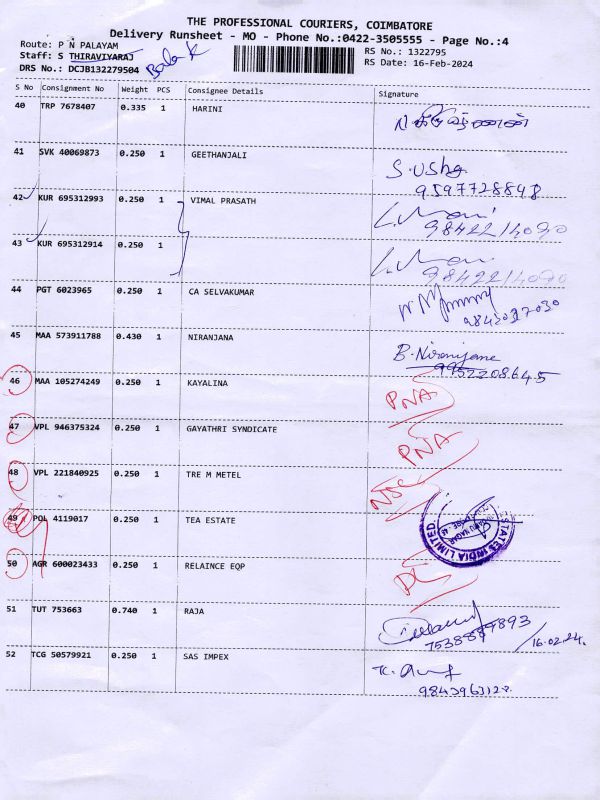 THE PROFESSIONAL COURIERS, COIMBATORE
Delivery Runsheet - MO - Phone No.:0422-3505555 - Page No.:4
Route: P N PALAYAM
RS No.: 1322795
Staff: S THIRAVIYARAJ
Bala K
RS Date: 16-Feb-2024
DRS No.: DCJB132279504
S No Consignment No Weight PCS Consignee Details Signature
40 TRP 7678407 0.335 1 HARINI
41 SVK 40069873 0.250 1 GEETHANJALI
S. Usha
9597728848
42 KUR 695312993 0.250 1 VIMAL PRASATH
9842214090
43 KUR 695312914 0.250 1
9842214090
44 PGT 6023965 0.250 1 CA SELVAKUMAR
45 MAA 573911788 0.430 1 NIRANJANA
B. Niranjana
9952208645
46 MAA 105274249 0.250 1 KAYALINA
PNA
47 VPL 946375324 0.250 1 GAYATHRI SYNDICATE
PNA
48 VPL 221840925 0.250 1 TRE M METEL
NSC
49 POL 4119017 0.250 1 TEA ESTATE
ESTATES INDIA LIMITED
50 AGR 600023433 0.250 1 RELAINCE EQP
DL
51 TUT 753663 0.740 1 RAJA
16.02.24.
52 TCG 50579921 0.250 1 SAS IMPEX